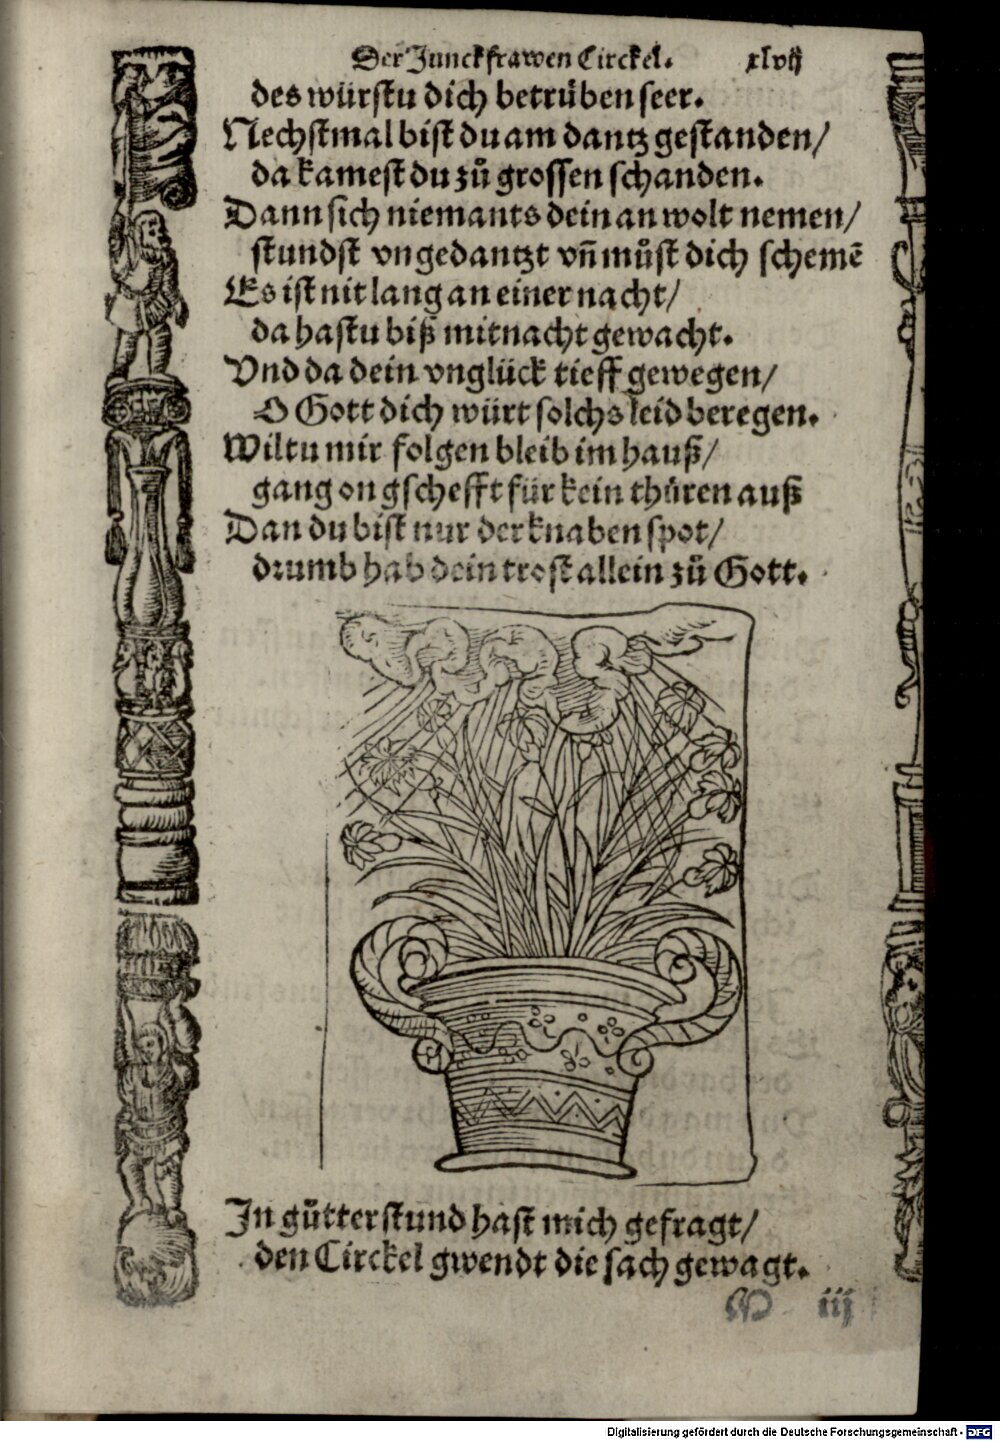 Der Junckfrawen Circkel. xlvij
des würstu dich betrüben seer.
Nechstmal bist du am dantz gestanden/
da kamest du zů grossen schanden.
Dann sich niemants dein an wolt nemen/
stundst vngedantzt vñ můst dich schemẽ
Es ist nit lang an einer nacht/
da hastu biß mitnacht gewacht.
Vnd da dein vnglück tieff gewegen/
O Gott dich würt solchs leid beregen.
Wiltu mir folgen bleib im hauß/
gang on gschefft für kein thüren auß
Dan du bist nur der knaben spot/
drumb hab dein trost allein zů Gott.
In gůtter stund hast mich gefragt/
den Circkel gwendt die sach gewagt.
M iij
Digitalisierung gefördert durch die Deutsche Forschungsgemeinschaft - DFG